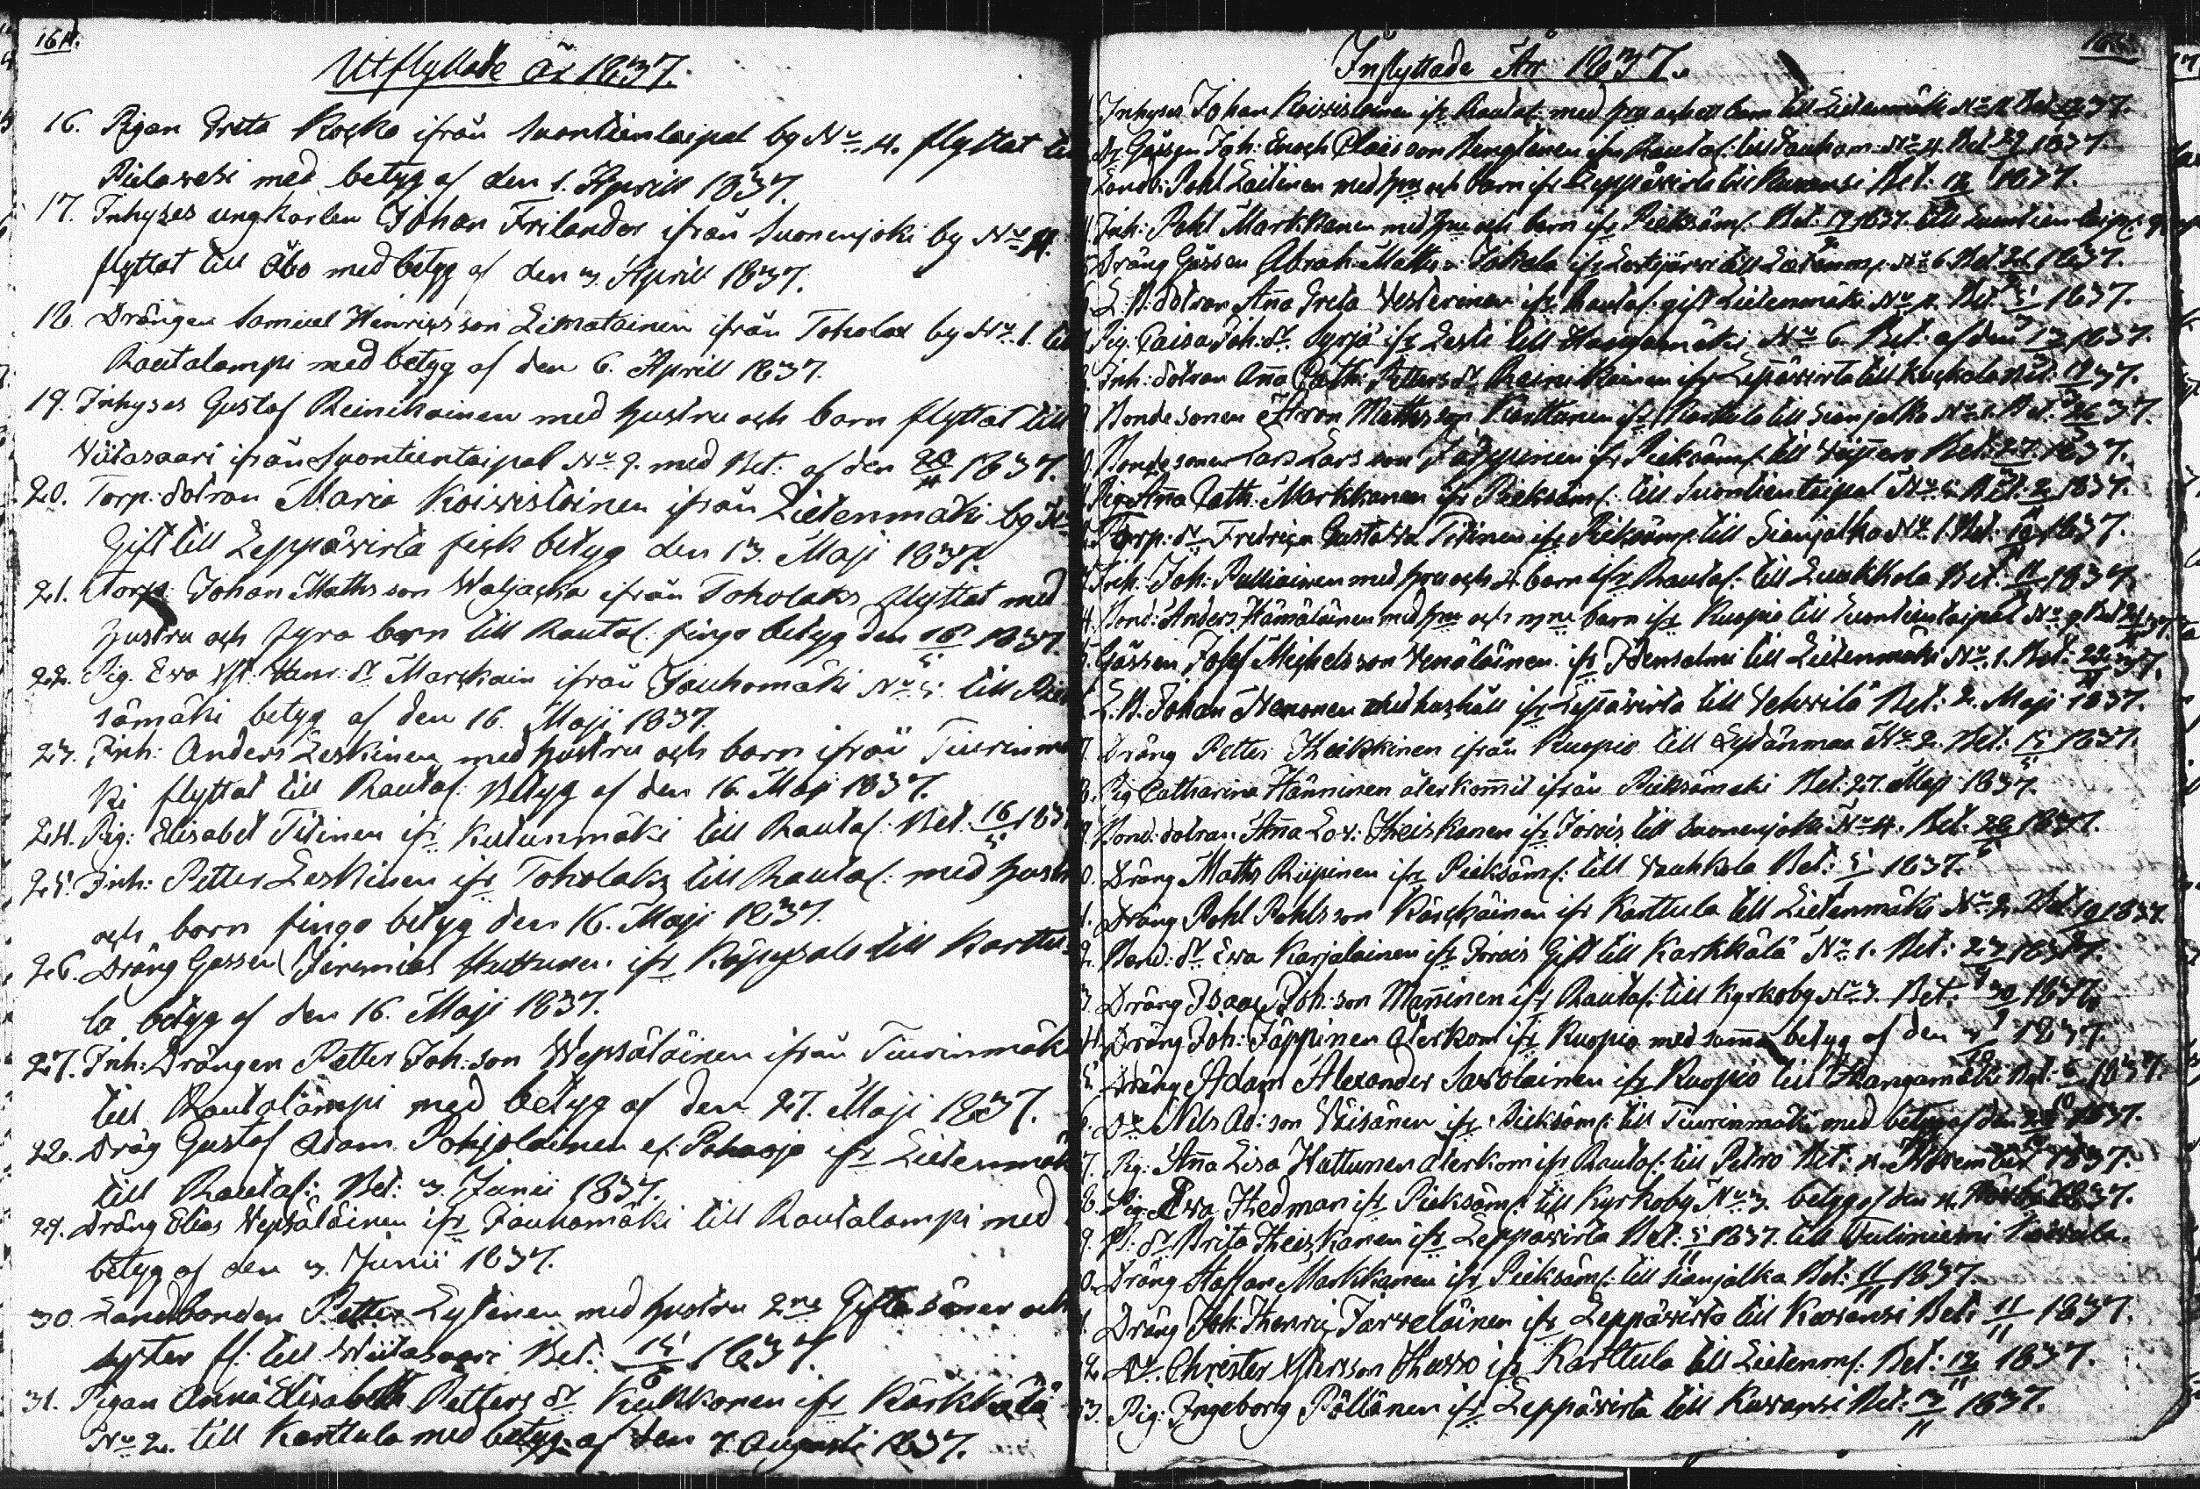 164.
Utflyttade År 1837.
16. Pigan Greta Kocko ifrån Suontientaipal by No 4. flyttat till
Pielavesi med betyg af den 1. Aprill 1837.
17. Inhyses ungkarlen Johan Frilander ifrån Suonenjoki by No 4.
flyttat till Åbo med betyg af den 3. Aprill 1837.
18. Drängen Samuel Henricsson Limatainen ifrån Toholax by No 1. till
Rautalampi med betyg af den 6. Aprill 1837.
19. Inhyses Gustaf Reinikainen med hustru och barn flyttat till
Viitasaari ifrån Suontientaipal No 9. med Bet: af den 20/4 1837.
20. Torp: dotran Maria Koivistoinen ifrån Lietenmäki by No
Gift till Leppävirta fick betyg den 13. Maji 1837.
21. Torp: Johan Mathsson Waljacka ifrån Toholaks flyttat med
hustru och fyra barn till Rautal: fingo betyg den 16/5 1837.
22. Pig. Ewa Henr: dr Marckain ifrån Jauhomäki No 5. till Piek
sämäki betyg af den 16. Maji 1837.
23. Inh: Anders Leskinen med hustru och barn ifrån Tiurinmä
ki flyttat till Rautal: Betyg af den 16. Maji 1837.
24. Pig: Elisabet Titinen ifr Kutunmäki till Rautal: Bet. 16/5 1837
25. Inh: Petter Leskinen ifr Toholaks till Rautal: med hustru
och barn fingo betyg den 16. Maji 1837.
26. Dräng Gossen Jeremias Huttunen ifr Käpysalo till Karttu-
la betyg af den 16. Maji 1837.
27. Inh: Drängen Petter Joh:son Wepsäläinen ifrån Tiurinmäki
till Rautalampi med betyg af den 27. Maji 1837.
28. Dräg Gustaf Adam Pohjolainen ifr Lietenmäk
till Rautal: Bet: 3. Junii 1837.
29. Dräng Elias Wepsäläinen ifr Jauhomäki till Rautalampi med
betyg af den 3. Junii 1837.
30. Landbonden Petter Lytinen med hustru 2ne Gifta söner och
syster fl: till Wiitasaari Bet: 15/6 1837.
31. Pigan Anna Elisabeth Petters dr Kukkonen ifr Kärkkälä
No 2. till Karttula med betyg af den 7 Augusti 1837.
Inflyttade År 1837.
Inhyses Johan Koivistoinen ifr Rautal: med hru och ett barn till Lietenmäki No Bet. 37.
Gossen Joh: Enoch Claësson Bengtenen ifr Rautal: till Jauhom: No 4. Bet. 29 1837.
Landb: Pohl Laitinen med hru och barn ifr Leppävirta till Kuvansi Bet: 1837.
Inh: Pohl Markkanen med hru och barn ifr Pieksäm: Bet. 17 1837. till Suontientaipal
Dräng Gossen Abrah: Maths: Jokela ifr Lestijärvi till Lietenm: No 6. Bet. 1837.
L. B. dotran Anna Greta Westerinen ifr Rautal: gift Lietenmäki No Bet. 1837.
Pig. Caisa Joh: dr Syrjä ifr Lesti till Hangamäki No 6. Bet: af den 13 1837.
Inh: dotran Anna Cath: Petters dr Reinikainen ifr Leppävirta till Kuckola Bet: 37.
Bonde sonen Aron Mathsson Karttunen ifr Karttula till Sianjalka No 1. Bet. 26 37.
Bonde sonen Lars Larsson Jäppinen ifr Pieksäm: till Bet. 27. 1837.
Pig. Anna Cath: Markkanen ifr Pieksäm: till Suontientaipal No 5. Bet. 2 1837.
Torp: dr Fredrica Gustava Titinen ifr Pieksäm: till Sianjalka No 1. Bet. 10 1837.
Inh: Joh: Pulliainen med hru och 4 barn ifr Rautal: till Luukkola Bet. 1837.
Bond: Anders Hämäläinen med hru och barn ifr Kuopio till Suontientaipal No 9 Bet 37.
Gossen Josef Michelsson Venäläinen ifr Idensalmi till Lietenmäki No 1. Bet: 22 37.
L. B. Johan Nenonen med hushåll ifr Leppävirta till Vehvilä Bet: 2. Maji 1837.
Dräng Petter Heikkinen ifrån Kuopio till Lydänmaa No 2. Bet: 15/5 1837.
Pig Catharina Hänninen återkommit ifrån Pieksämäki Bet: 27. Maji 1837.
Bond: dotran Anna Lov: Heiskanen ifr Jorois till Suonenjoki No 4. Bet: 28 1837.
Dräng Maths Riipinen ifr Pieksäm: till Vauhkola Bet: 5 1837.
Dräng Pohl Pohlsson Käschäinen ifr Karttula till Lietenmäki No 2. Bet 19 1837
Bond: dr Ewa Karjalainen ifr Jorois Gift till Karkkälä No 1. Bet: 23 1837.
Dräng Isaac Joh:son Manninen ifr Rautal: till Kyrkoby No 3. Bet: 30 1837
Dräng Joh: Jäppinen återkom ifr Kuopio med samma betyg af den 1837.
Dräng Adam Alexander Savolainen ifr Kuopio till Hangamäki Bet: 5/10 1837.
Dr Nils Ad:son Väisänen ifr Pieksäm: till Tiurinmäki med betyg af den 1837.
Pig: Anna Lisa Huttunen återkom ifr Rautal: till Petro Bet: 4. November 1837.
Pig: Ewa Hedman ifr Pieksäm: till Kyrkoby No 3. betyg af den 4. Novbr 1837.
B: dr Brita Heiskanen ifr Leppävirta Bet: 5/11 1837. till Tuliniemi
Dräng Staffan Markkanen ifr Pieksäm: till Sianjalka Bet: 11/11 1837.
Dräng Joh: Henric Tarvelainen ifr Leppävirta till Kuvansi Bet: 11/11 1837.
Dr. Christer Husso ifr Karttula till Lietenm: Bet: 12/11 1837.
Pig: Ingeborg Pöllänen ifr Leppävirta till Kuvansi Bet: 13/11 1837.